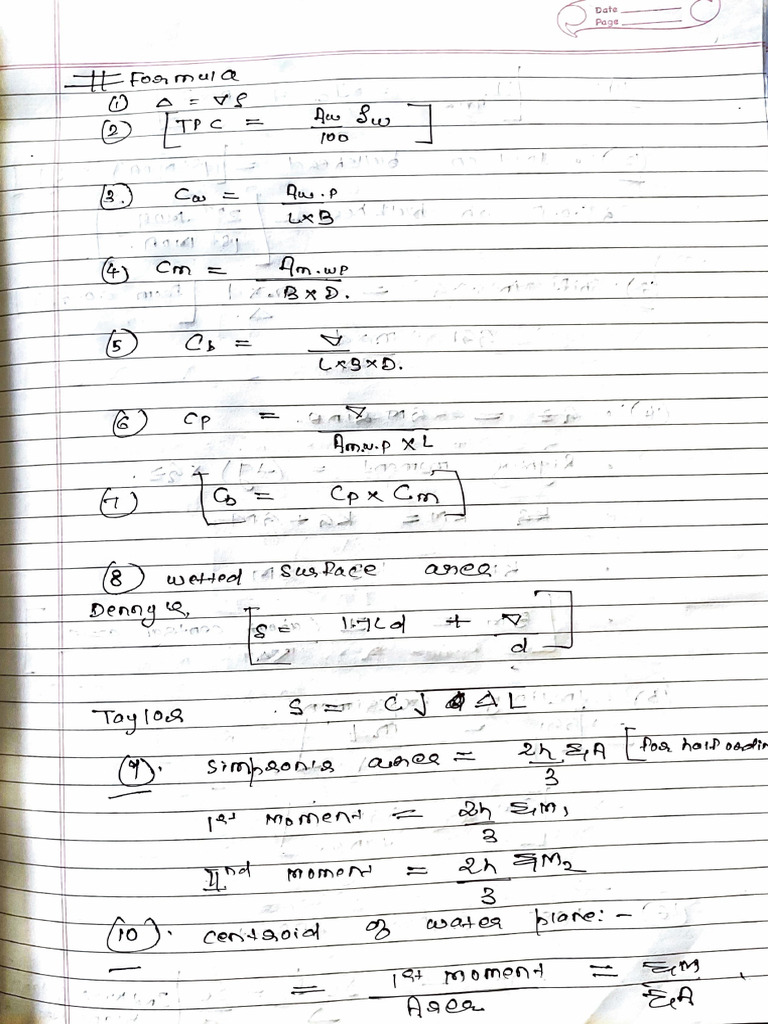 Date
Page
# Formula
(1) Δ = ∇ρ
(2) [TPC = Aw ρw / 100]
(3). Cw = Aw.p / L×B
(4) Cm = Am.wp / B×D.
(5) Cb = ∇ / L×B×D.
(6) Cp = ∇ / Am.w.p × L
(7) [Cb = Cp × Cm]
(8) wetted surface area
Denny's, [S = 1.7Ld + ∇ / d]
Taylor S = C√ΔL
(9). Simpson's area = 2h/3 ΣA [for half ordin
1st moment = 2h/3 Σm1
IInd moment = 2h/3 ΣM2
(10). centroid of water plane:-
= 1st moment / Area = Σm / ΣA